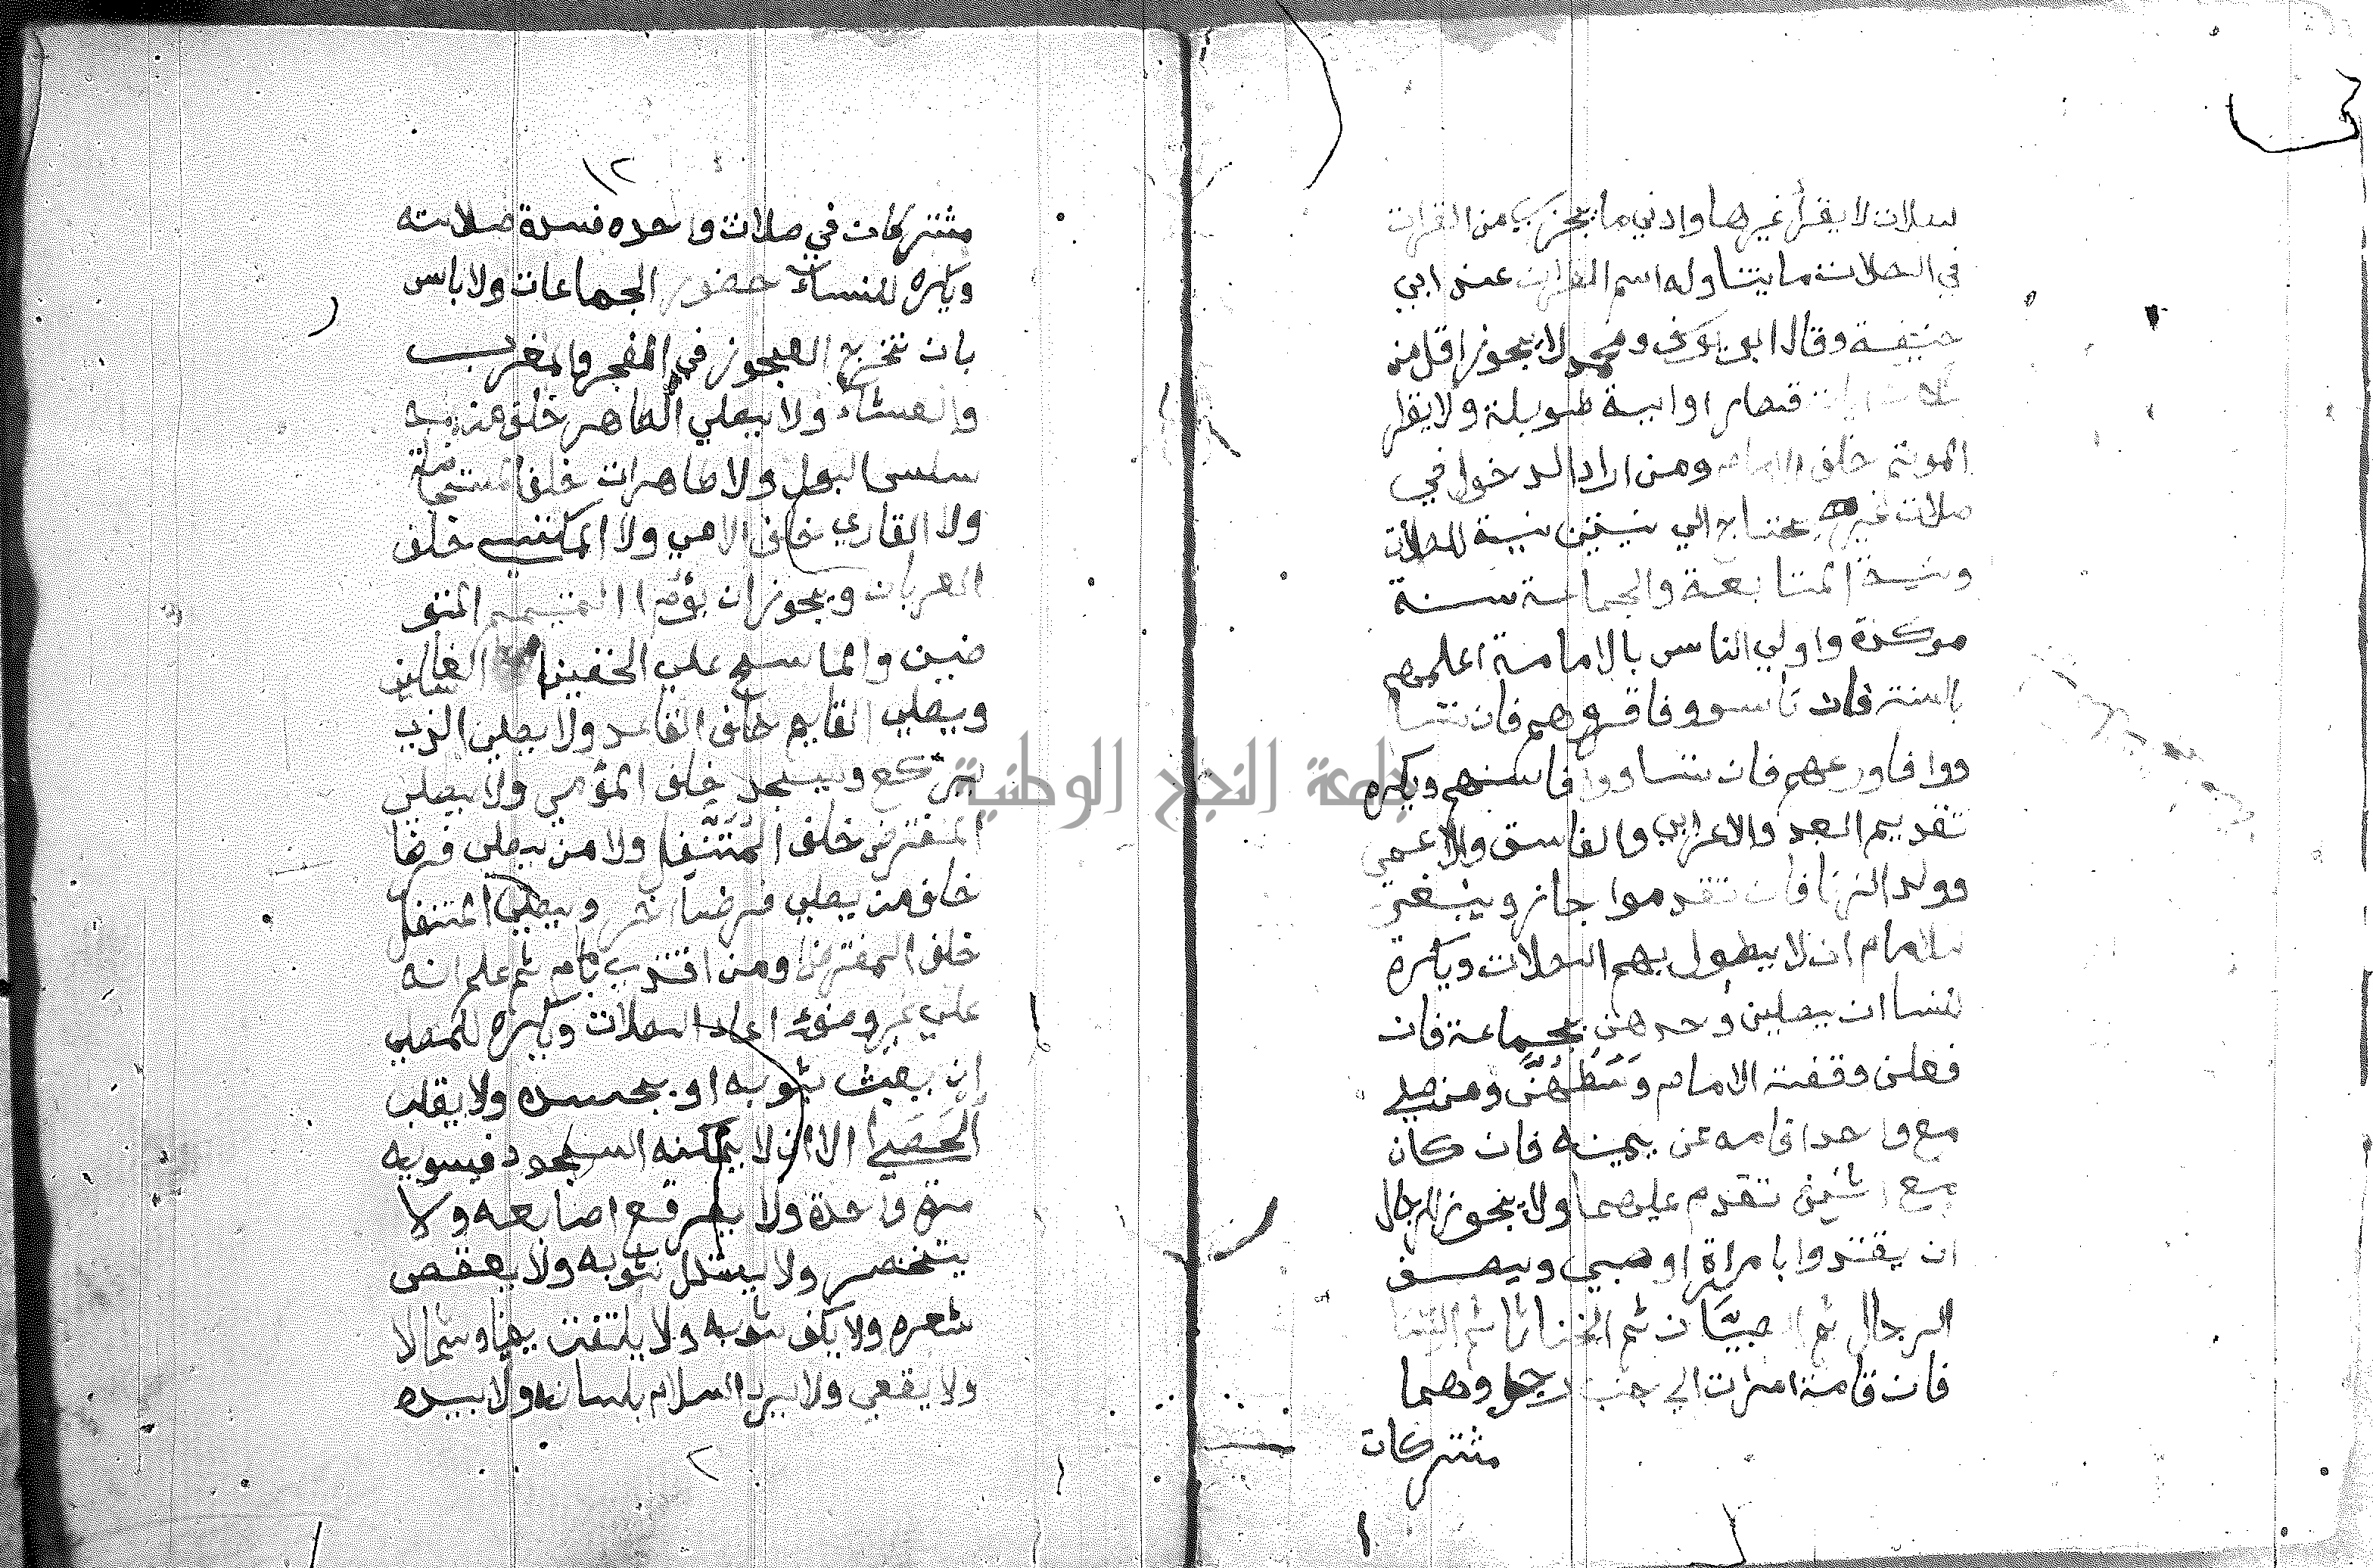 لصلات لا يقرأ غيرها وادني ما يجزي من القرات
في الصلات ما يتناوله اسم القرات عند ابي
حنيفة وقال ابو يوسف ومحمد لا يجوز اقل من
ثلاث ايات قصار او اية طويلة ولا يقرا
الموتم خلف الامام ومن اراد الدخول في
صلات غيره يحتاج الي نيتين نية للصلات
ونية المتابعة والجماعة سنة
موكدة واولي الناس بالامامة اعلمهم
بالسنة فان تاسوو فاقروهم فان تتسا
ووا فاورعهم فان تتساووا فاسنهم ويكره
تقديم العبد والاعرابي والفاسق والاعمي
وولد الزنا فان تقدموا جاز وينبغي
للامام ان لا يطول بهم الصلات ويكرة
للنسا ان يصلين وحدهن بجماعة فان
فعلن وقفتة الامام وَسَطُهُنَّ ومن صلي
مع واحد اقامه عن يمينه فان كان
مع اثنين تقدم عليهما ولا يجوز للرجال
ان يقتدوا بامراة او صبي ويصف
الرجال ثم الصبيَّان ثم الخناثا ثم النسا
فان قامة امرات الي جنب رجل وهما
مشتركات
١٢
مشتركات في صلات واحده فسدة صلاته
ويكره للنساء حضور الجماعات ولا باس
بان تخرج العجوز في الفجر والمغرب
والعشاء ولا يصلي الطاهر خلف من به
سلسى البول ولا طاهرات خلف المستحاضة
ولا القاري خلف الامي ولا المكتسي خلف
العريان ويجوز ان يؤم المتيمم المتو
ضين والماسح علي الخفين الغاسلين
ويصلي القايم خلف القاعد ولا يصلي الذي
يركع ويسجد خلف المؤمي ولا يصلي
المفترض خلف المُتَنَفِّل ولا من يصلي فرضا
خلف من يصلي فرضا اخر ويصلي المتنفل
خلف المفترض ومن اقتدي بامام ثم علم انه
علي غير وضوء اعاد الصلات ويكره للمصلي
ان يعبث بثوبه او بجسده ولا يقلب
الحَصَى الا ان لا يمكنه السجود فيسويه
مرة واحدة ولا يفرقع اصابعه ولا
يتخصر ولا يسدل ثوبه ولا يعقص
شعره ولا يكف ثوبه ولا يلتفت يمينا وشمالا
ولا يقعي ولا يرد السلام بلسانه ولا بيده
٢
جامعة النجاح الوطنية